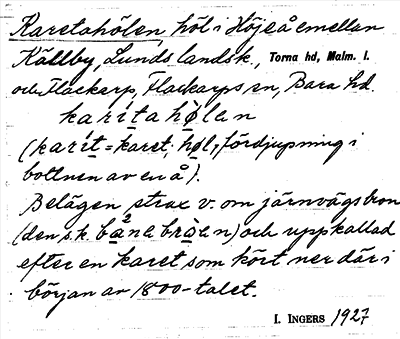 Karetahölen, höl i Höjeå emellan
Källby, Lunds landsk., Torna hd, Malm. l.
och Flackarp, Flackarps sn, Bara hd.
karitahølan
(karit = karet, høl, fördjupning i
bottnen av en å).
Belägen strax v. om järnvägsbron
(den s.k. banebroen) och uppkallad
efter en karet som kört ner där i
början av 1800-talet.
I. INGERS 1927